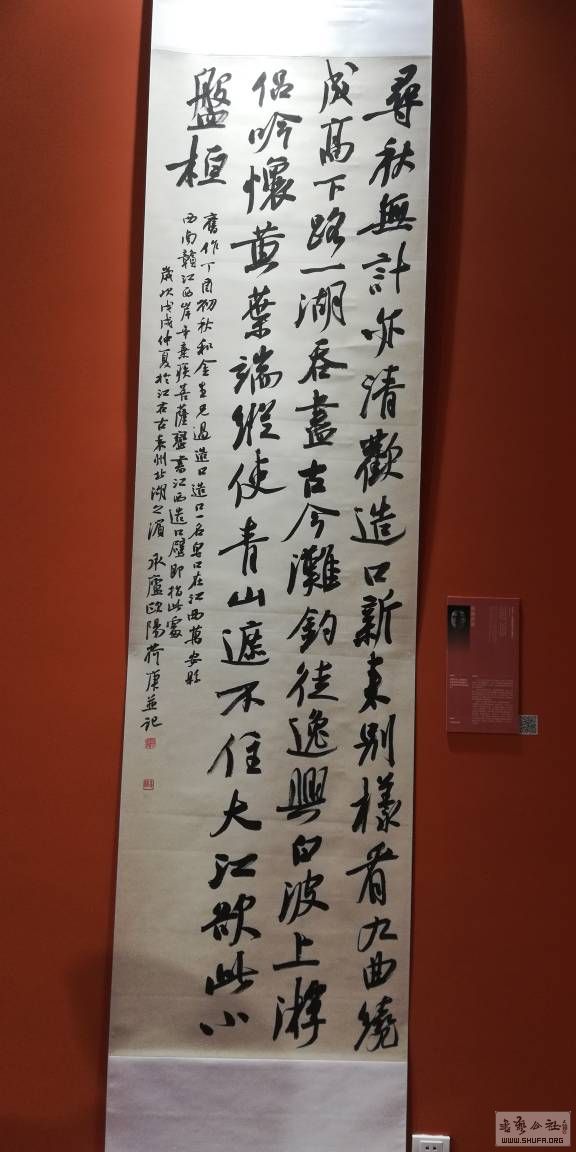 尋秋無計亦清歡造口新来别樣看九曲繞
成高下路一湖吞盡古今灘釣徒逸興白波上游
侣吟懷黄葉端縱使青山遮不住大江欲此小
盤桓
舊作丁酉初秋和金生兄過造口造口一名皂口在江西萬安縣
西南贛江西岸辛棄疾菩薩蠻書江西造口壁即指此處
歲次戊戌仲夏於江右古袁州北湖之湄承廬歐陽荷庚並記
WWW.SHUFA.ORG